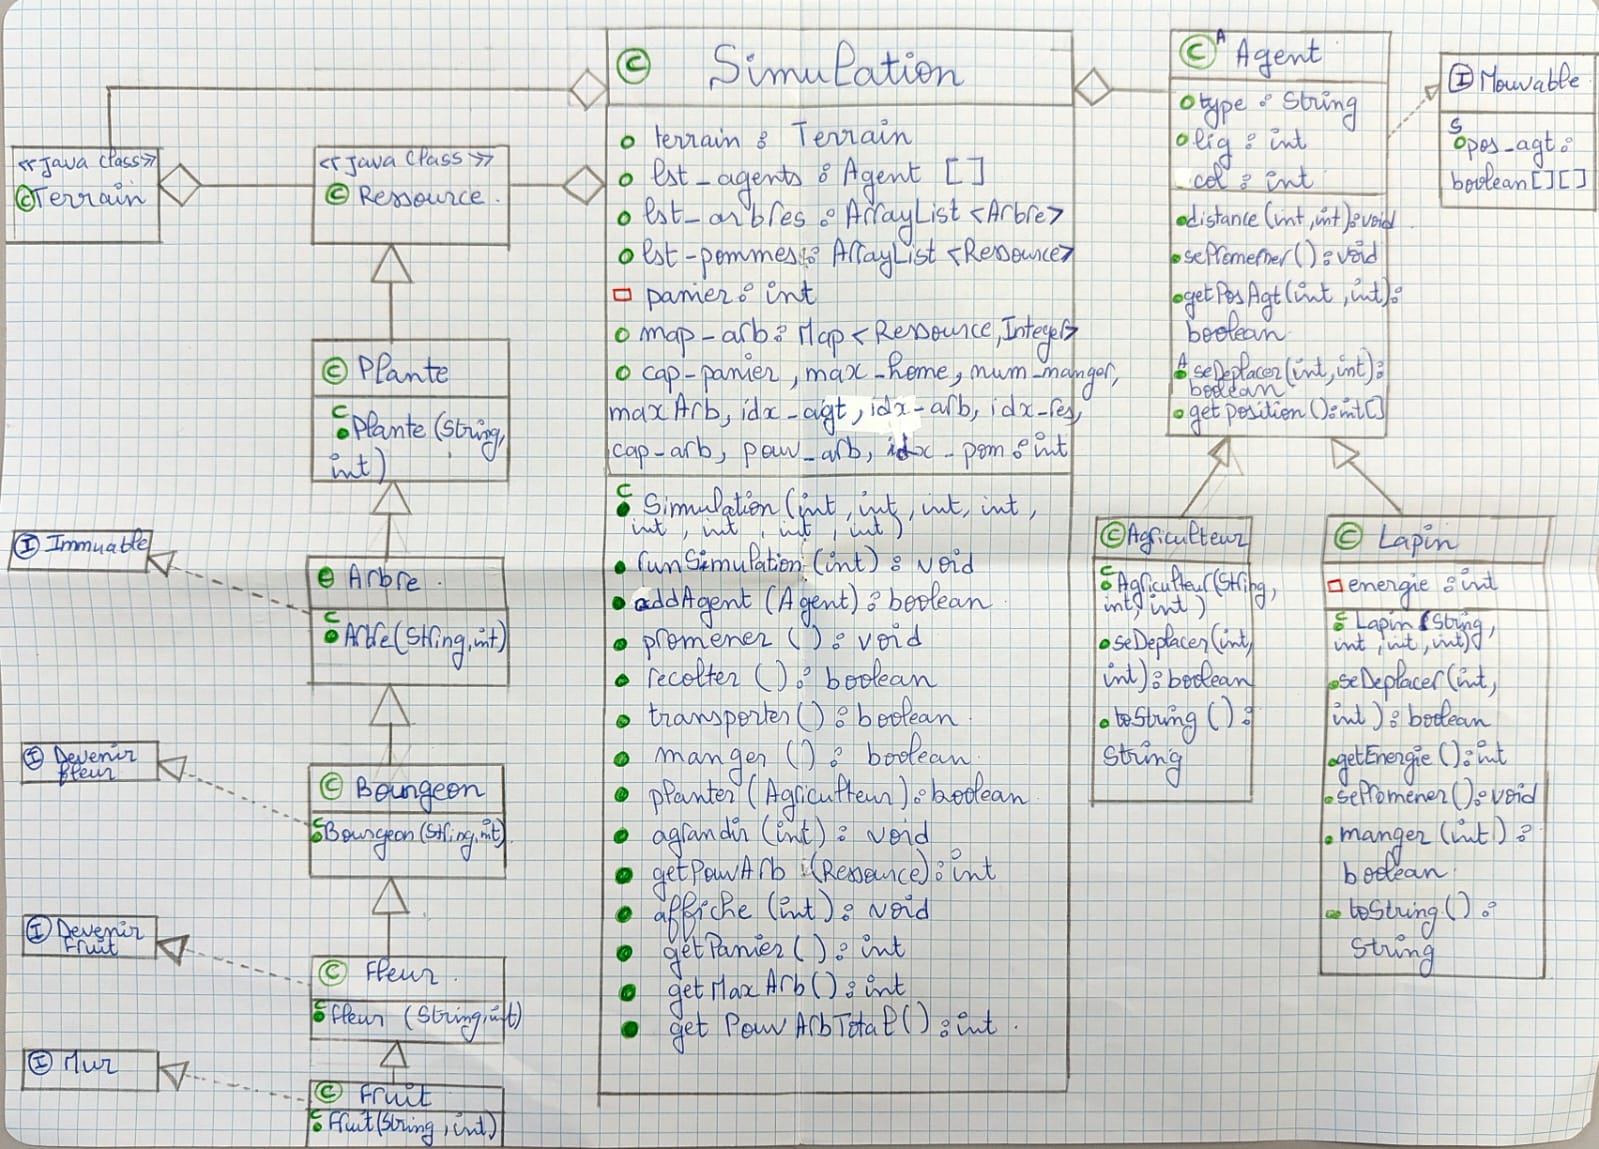 <<Java Class>>
C Terrain
<<Java Class>>
C Ressource
C Plante
C
Plante (String,
int)
I Immuable
C Arbre
C
Arbre (String, int)
I Devenir
fleur
C Bourgeon
C
Bourgeon (String, int)
I Devenir
fruit
C Fleur
C
Fleur (String, int)
I Mur
C Fruit
C
Fruit (String, int)
C Simulation
terrain : Terrain
lst_agents : Agent []
lst_arbres : ArrayList <Arbre>
lst_pommes : ArrayList <Ressource>
panier : int
map_arb : Map <Ressource, Integer>
cap_panier, max_home, num_manger,
maxArb, idx_agt, idx_arb, idx_res,
cap_arb, pouv_arb, idx_pom : int
C
Simulation (int, int, int, int,
int, int, int, int)
runSimulation (int) : void
addAgent (Agent) : boolean
promener () : void
recolter () : boolean
transporter () : boolean
manger () : boolean
planter (Agriculteur) : boolean
agrandir (int) : void
getPouvArb (Ressource) : int
affiche (int) : void
getPanier () : int
getMaxArb () : int
get PouvArbTotal () : int
C A Agent
type : String
lig : int
col : int
distance (int, int) : void
sePromener () : void
getPosAgt (int, int) :
boolean
A
seDeplacer (int, int) :
boolean
getposition () : int []
I Mouvable
S
pos_agt :
boolean [][]
C Agriculteur
C
Agriculteur (String,
int, int)
seDeplacer (int,
int) : boolean
toString () :
String
C Lapin
energie : int
C
Lapin (String,
int, int, int)
seDeplacer (int,
int) : boolean
getEnergie () : int
sePromener () : void
manger (int) :
boolean
toString () :
String